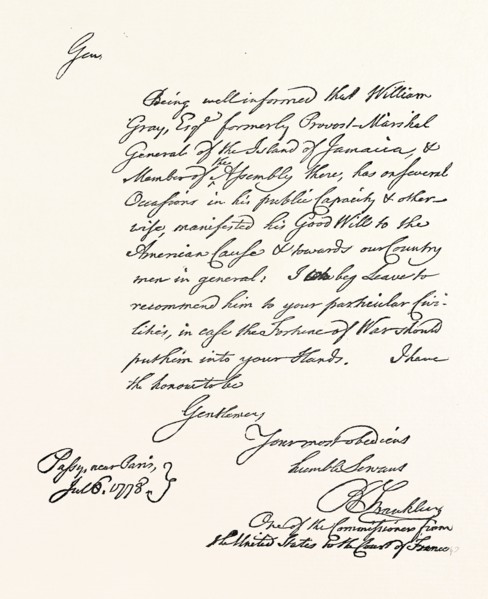 Gen,
Being well informed that William
Gray, Esqr. formerly Provost-Marshal
General of the Island of Jamaica, &
Member of the Assembly there, has on several
Occasions in his public Capacity & other-
wise, manifested his Good Will to the
American Cause & towards our Country
men in general: I beg Leave to
recommend him to your particular Civi-
lities, in case the Fortune of War should
put him into your Hands. I have
the honour to be
Gentlemen,
Your most obedient
humble Servant
B Franklin
One of the Commissioners from
the United States to the Court of France
Passy, near Paris,
Jul 6. 1778.